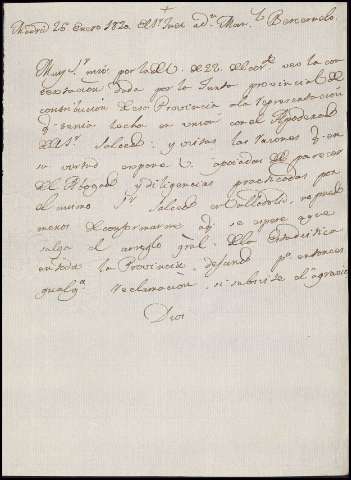 +
Madrid 26 Enero 1820. El Sr Juez a dn. Man. l Barcenelo.
Muy Sr. mio: por la de V. de 22 del corte. veo la con
testacion dada por la Junta provincial de
contribucion de esa Provincia a la representacion
q. tenia hecha en union con el Apoderado
del Sr. Salcedo: y vistas las razones q. en
su virtud expone V. apoiadas del parecer
del Abogado y diligencias practicadas por
el mismo Sr. Salcedo en Valladolid, no puedo
menos de conformarme a q. se espere a que
salga el arreglo gral. de la estadistica
en toda la Provincia, dejando pa. entonces
qualqa. reclamacion, si subsiste el agravio
Dios